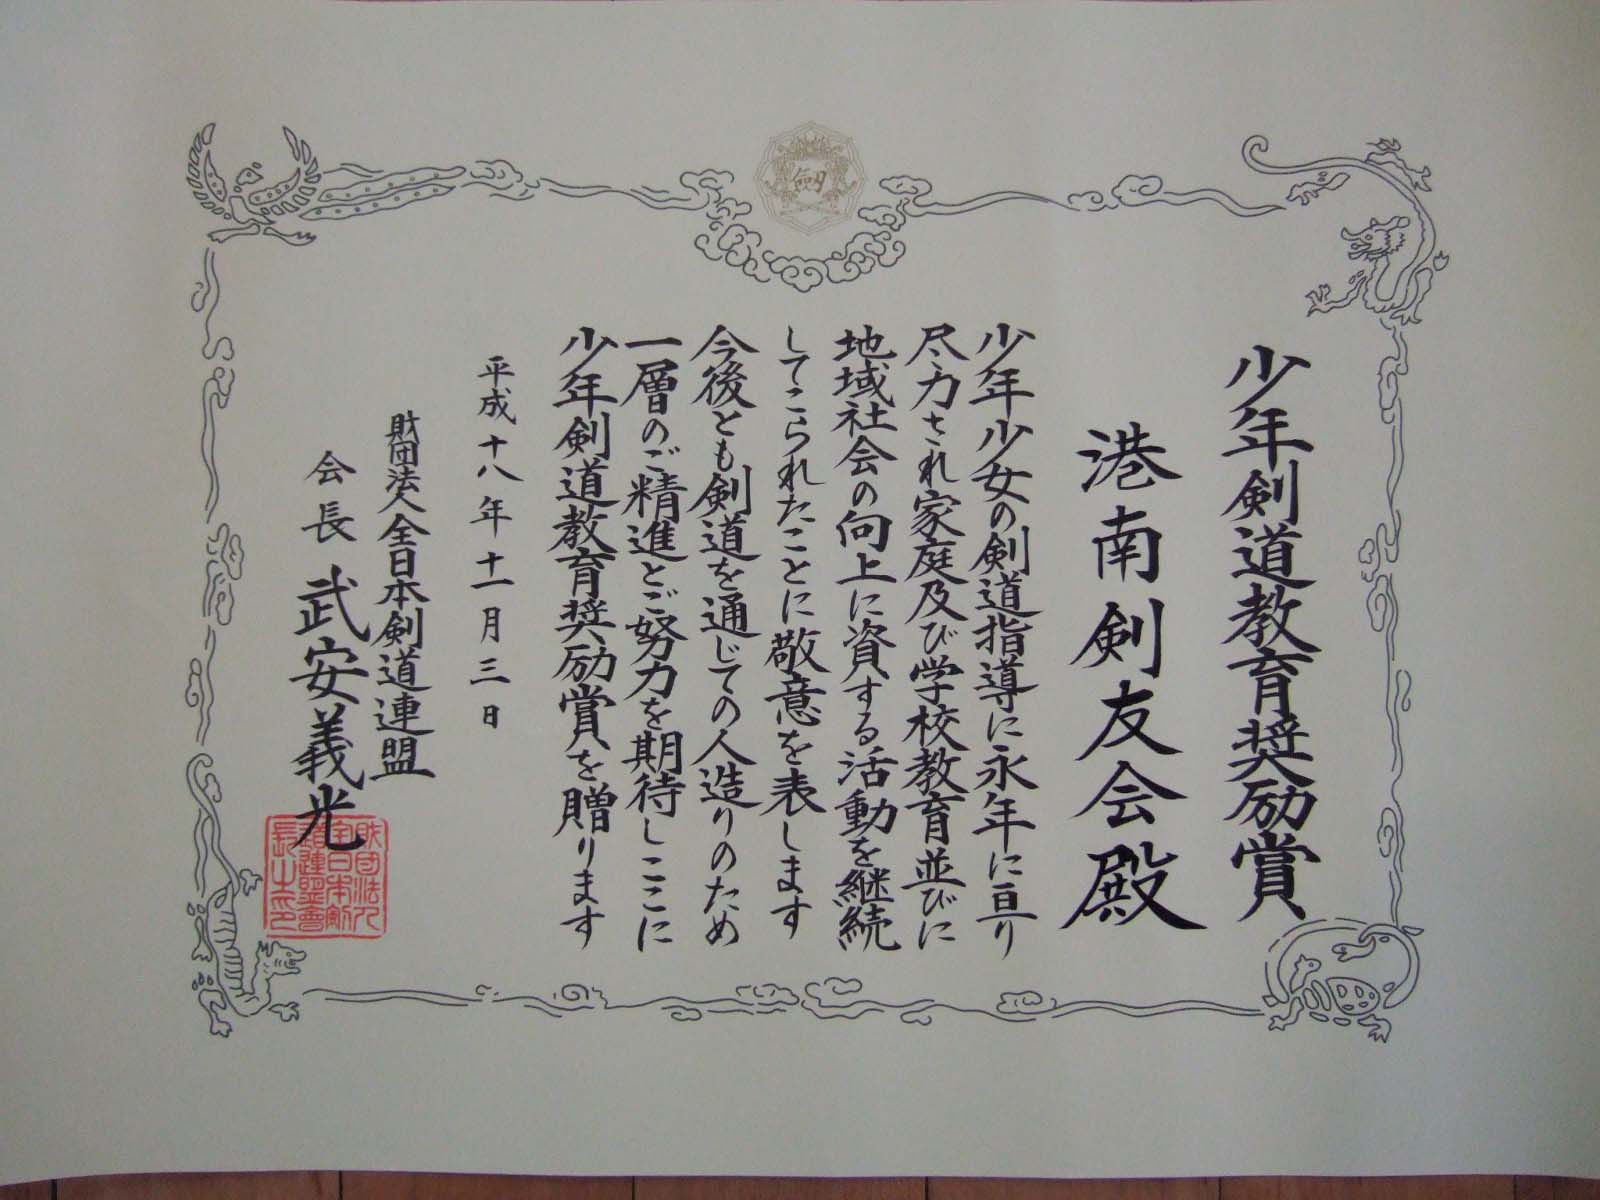 少年剣道教育奨励賞
港南剣友会殿
少年少女の剣道指導に永年に亘り
尽力され家庭及び学校教育並びに
地域社会の向上に資する活動を継続
してこられたことに敬意を表します
今後とも剣道を通じての人造りのため
一層のご精進とご努力を期待しここに
少年剣道教育奨励賞を贈ります
平成十八年十一月三日
財団法人全日本剣道連盟
会長 武安義光
財団法人
全日本剣
道連盟會
長之印